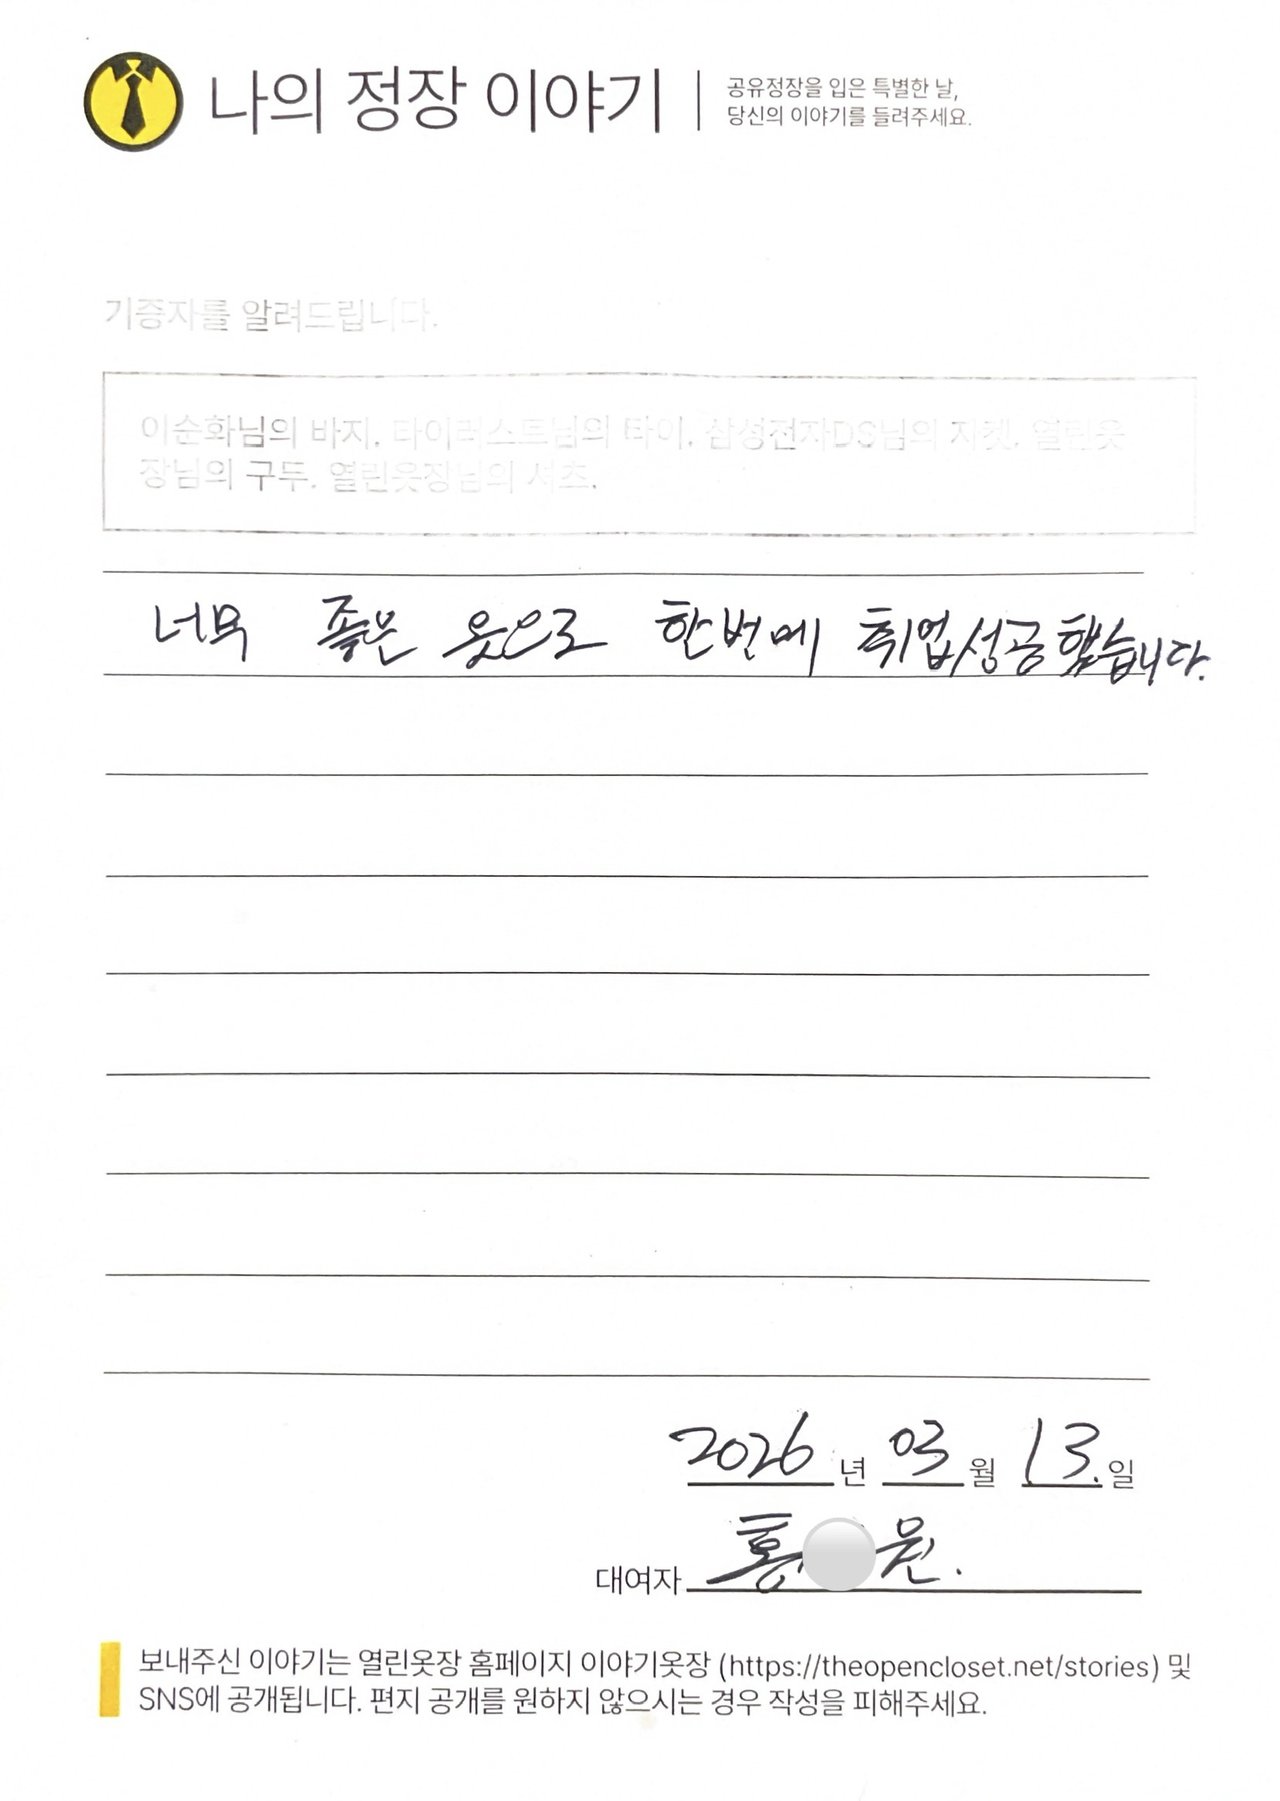 나의 정장 이야기
공유정장을 입은 특별한 날,
당신의 이야기를 들려주세요.
기증자를 알려드립니다.
이순화님의 바지, 타이러스트님의 타이, 삼성전자DS님의 자켓, 열린옷
장님의 구두, 열린옷장님의 셔츠.
너무 좋은 옷으로 한번에 취업성공했습니다.
2026년 03월 13.일
대여자 홍 원.
보내주신 이야기는 열린옷장 홈페이지 이야기옷장 (https://theopencloset.net/stories) 및
SNS에 공개됩니다. 편지 공개를 원하지 않으시는 경우 작성을 피해주세요.